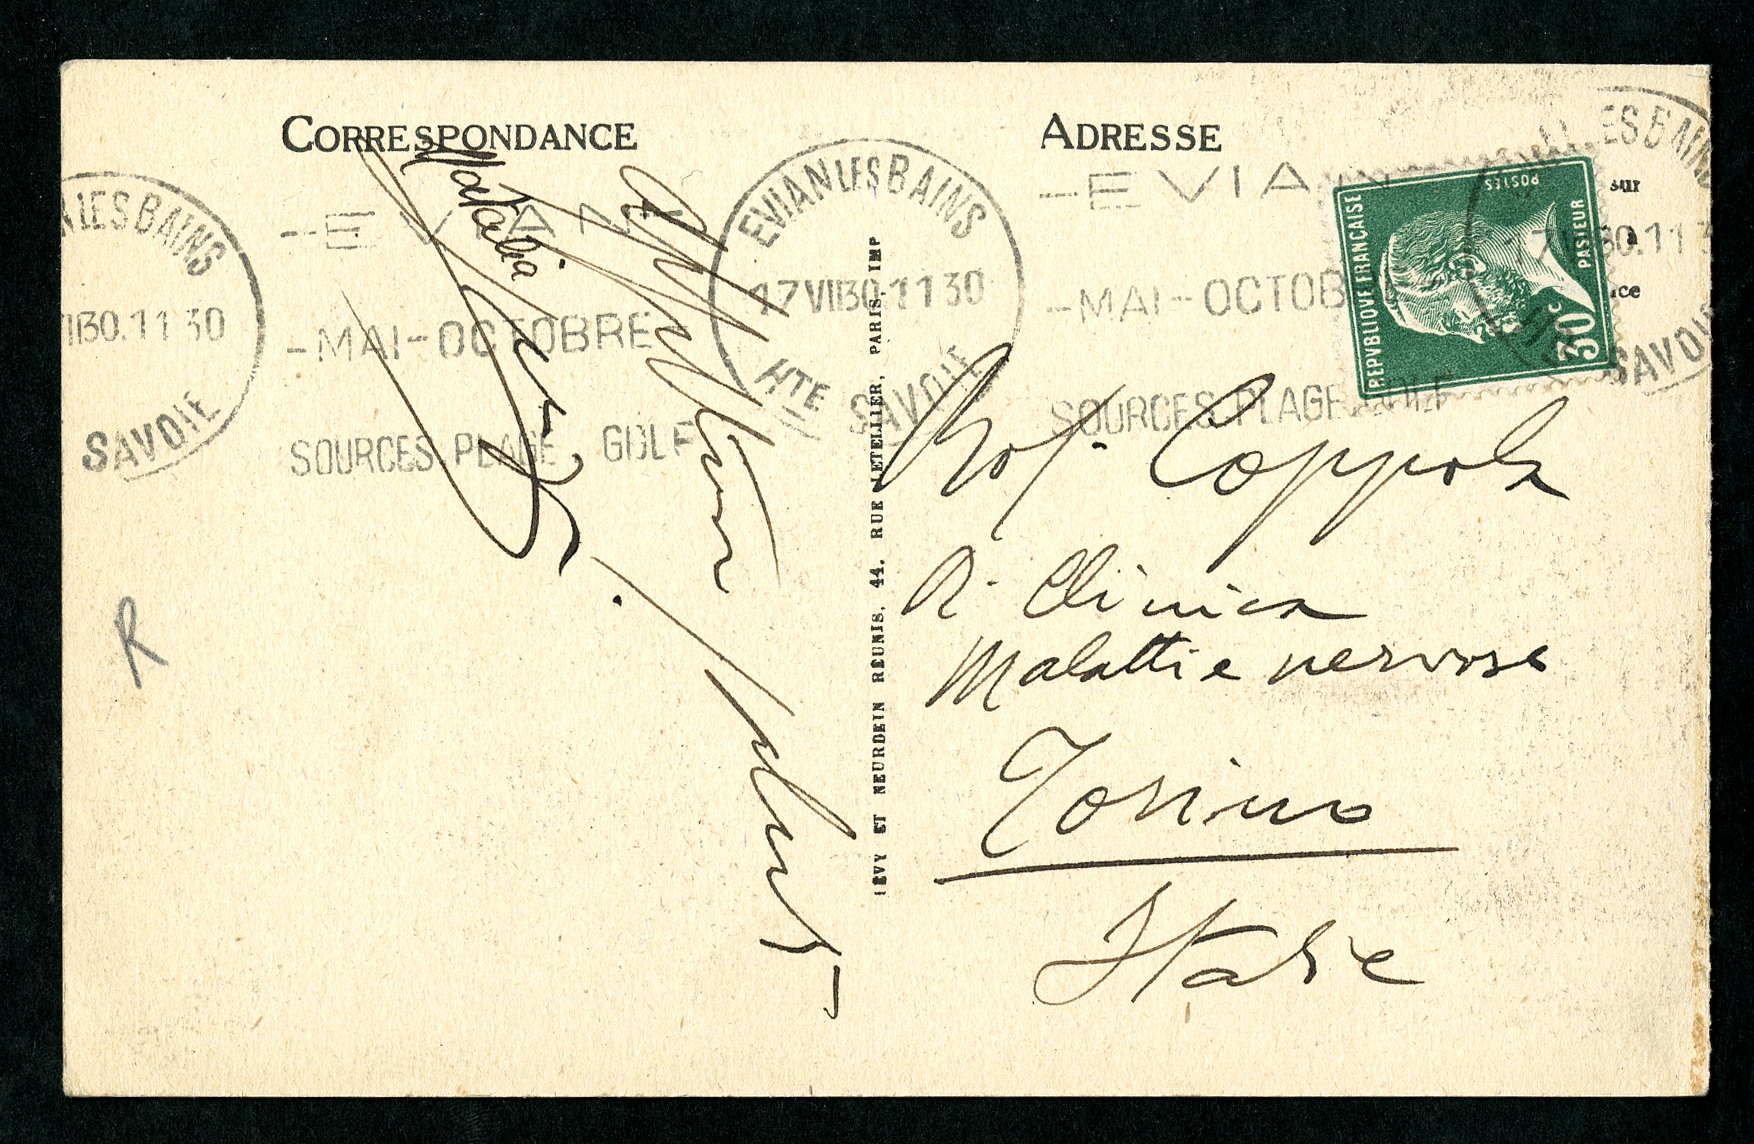 CORRESPONDANCE
ADRESSE
LES BAINS
VII30.11 30
SAVOIE
EVIAN
MAI-OCTOBRE
SOURCES PLAGE GOLF
EVIAN LES BAINS
17 VII30 11 30
HTE SAVOIE
EVIA
MAI-OCTOB
SOURCES PLAGE GOLF
ES BAINS
17 VII30.11 3
HTE SAVOIE
REPVBLIQVE FRANCAISE
POSTES
PASTEUR
30c
sur
ce
LÉVY ET NEURDEIN RÉUNIS, 44, RUE LETELLIER, PARIS. IMP
Natalia
Prof. Coppola
R. Clinica
Malattie nervose
Torino
Italie
R